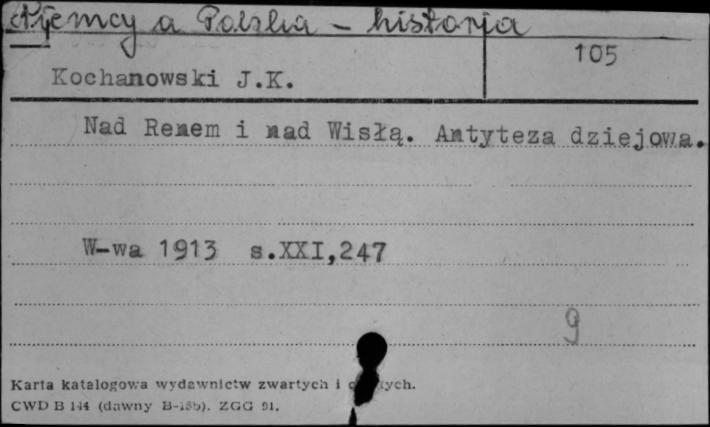 Niemcy a Polska - historja
105
Kochanowski J.K.
Nad Renem i nad Wisłą. Antyteza dziejowa.
W-wa 1913 s.XXI,247
9
Karta katalogowa wydawnictw zwartych i
CWD B 144 (dawny B-15b). ZGG 91.